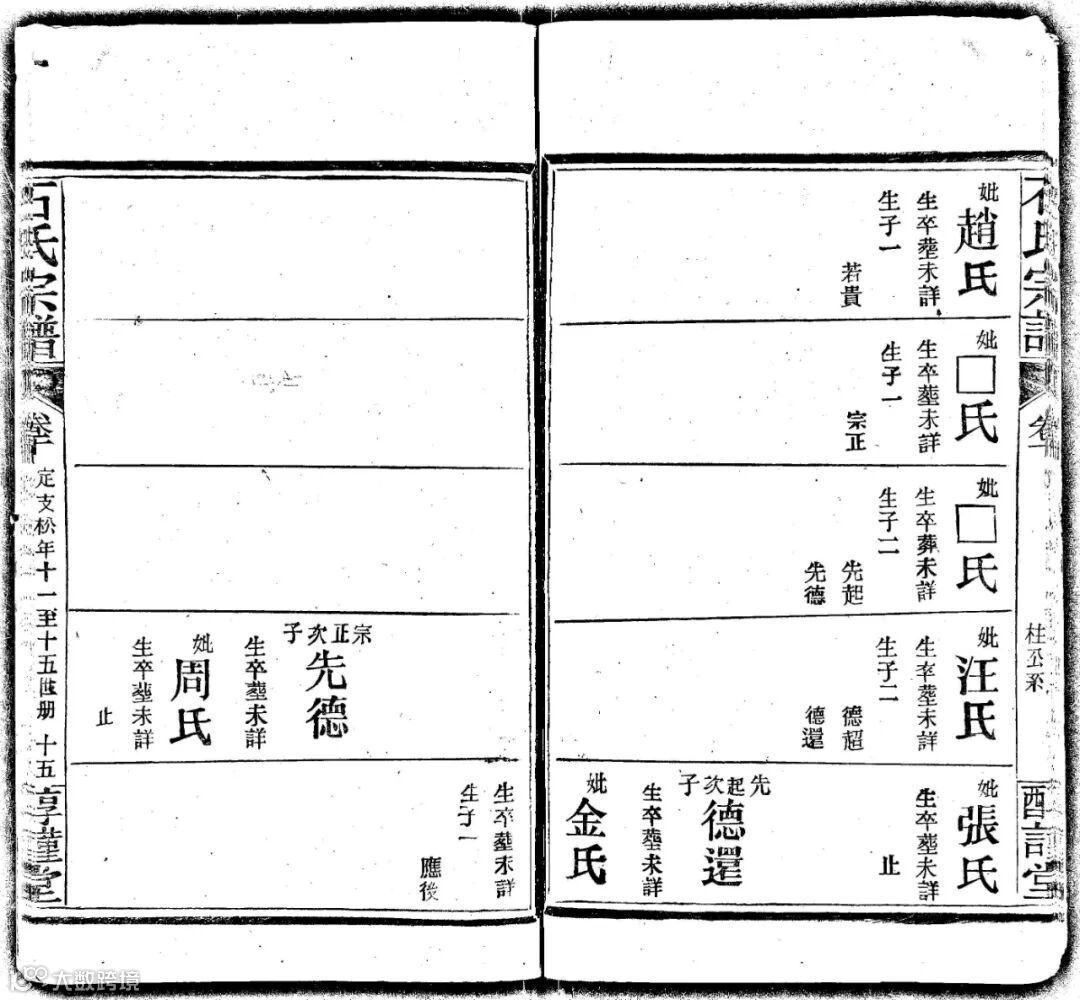 石氏宗譜
妣
趙氏
生卒塟未詳
生子一
若貴
妣
□氏
生卒塟未詳
生子一
宗正
妣
□氏
生卒葬未詳
生子二
先起
先德
妣
汪氏
生卒塟未詳
生子二
德超
德還
妣
張氏
生卒塟未詳
止
先起次子
德還
生卒塟未詳
妣
金氏
桂公系
宗正次子
先德
生卒塟未詳
妣
周氏
生卒塟未詳
止
生卒塟未詳
生子一
應後
石氏宗譜
定支松年十一至十五世册 十五
大数跨境